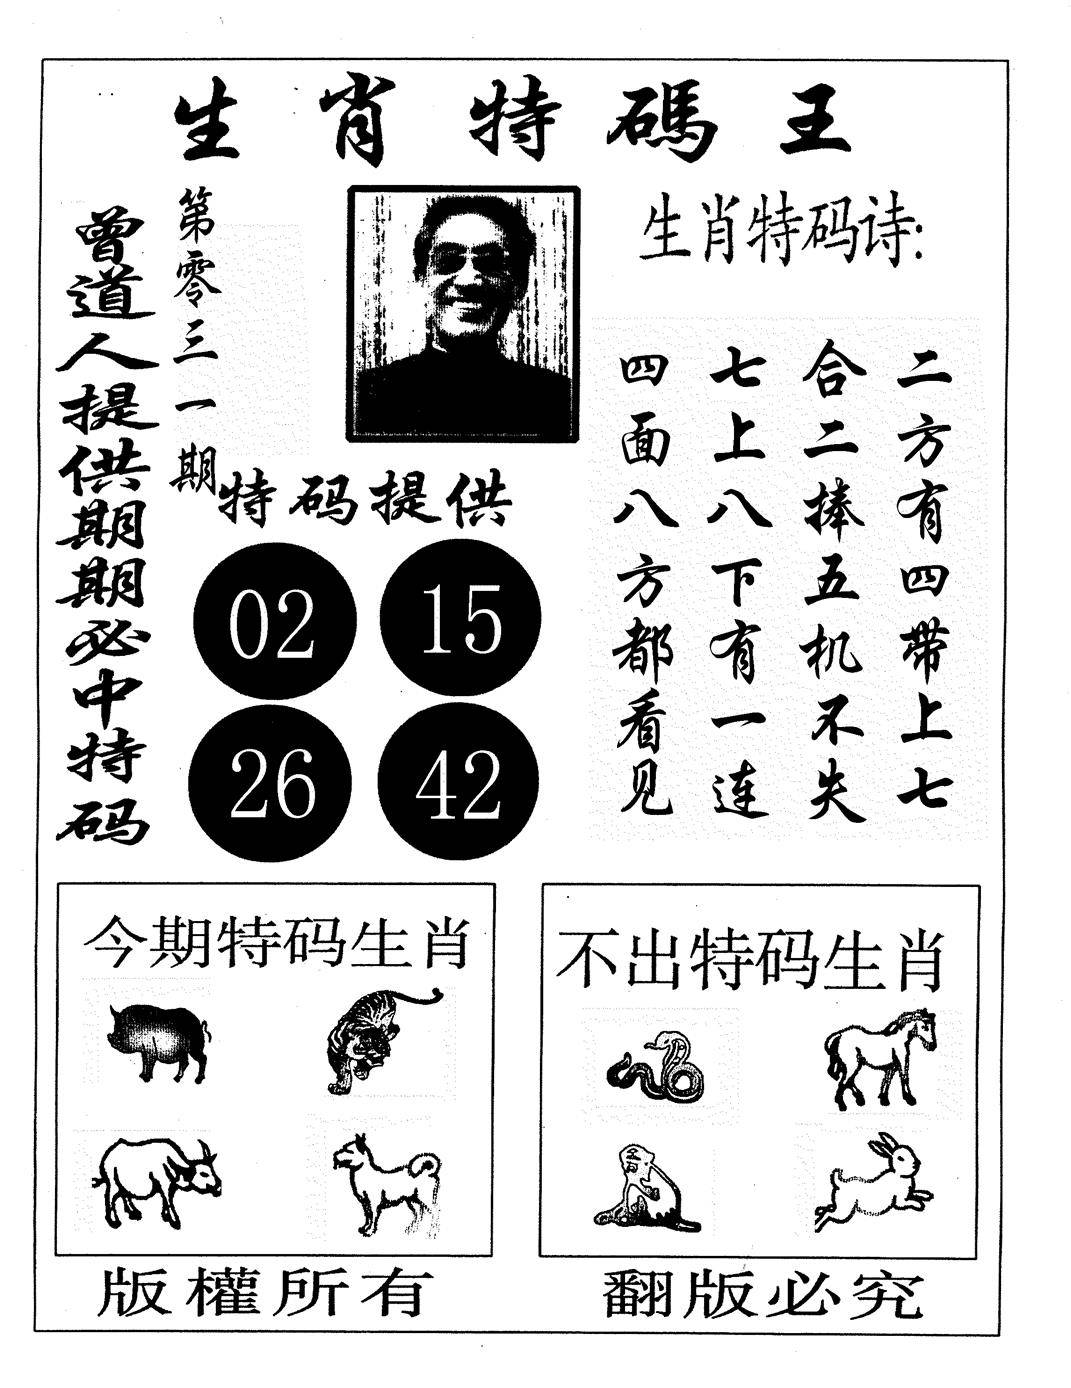 生肖特碼王
曾道人提供期期必中特码
第零三一期
特码提供
02 15
26 42
生肖特码诗:
二方有四带上七
合二捧五机不失
七上八下有一连
四面八方都看见
今期特码生肖
不出特码生肖
版權所有
翻版必究